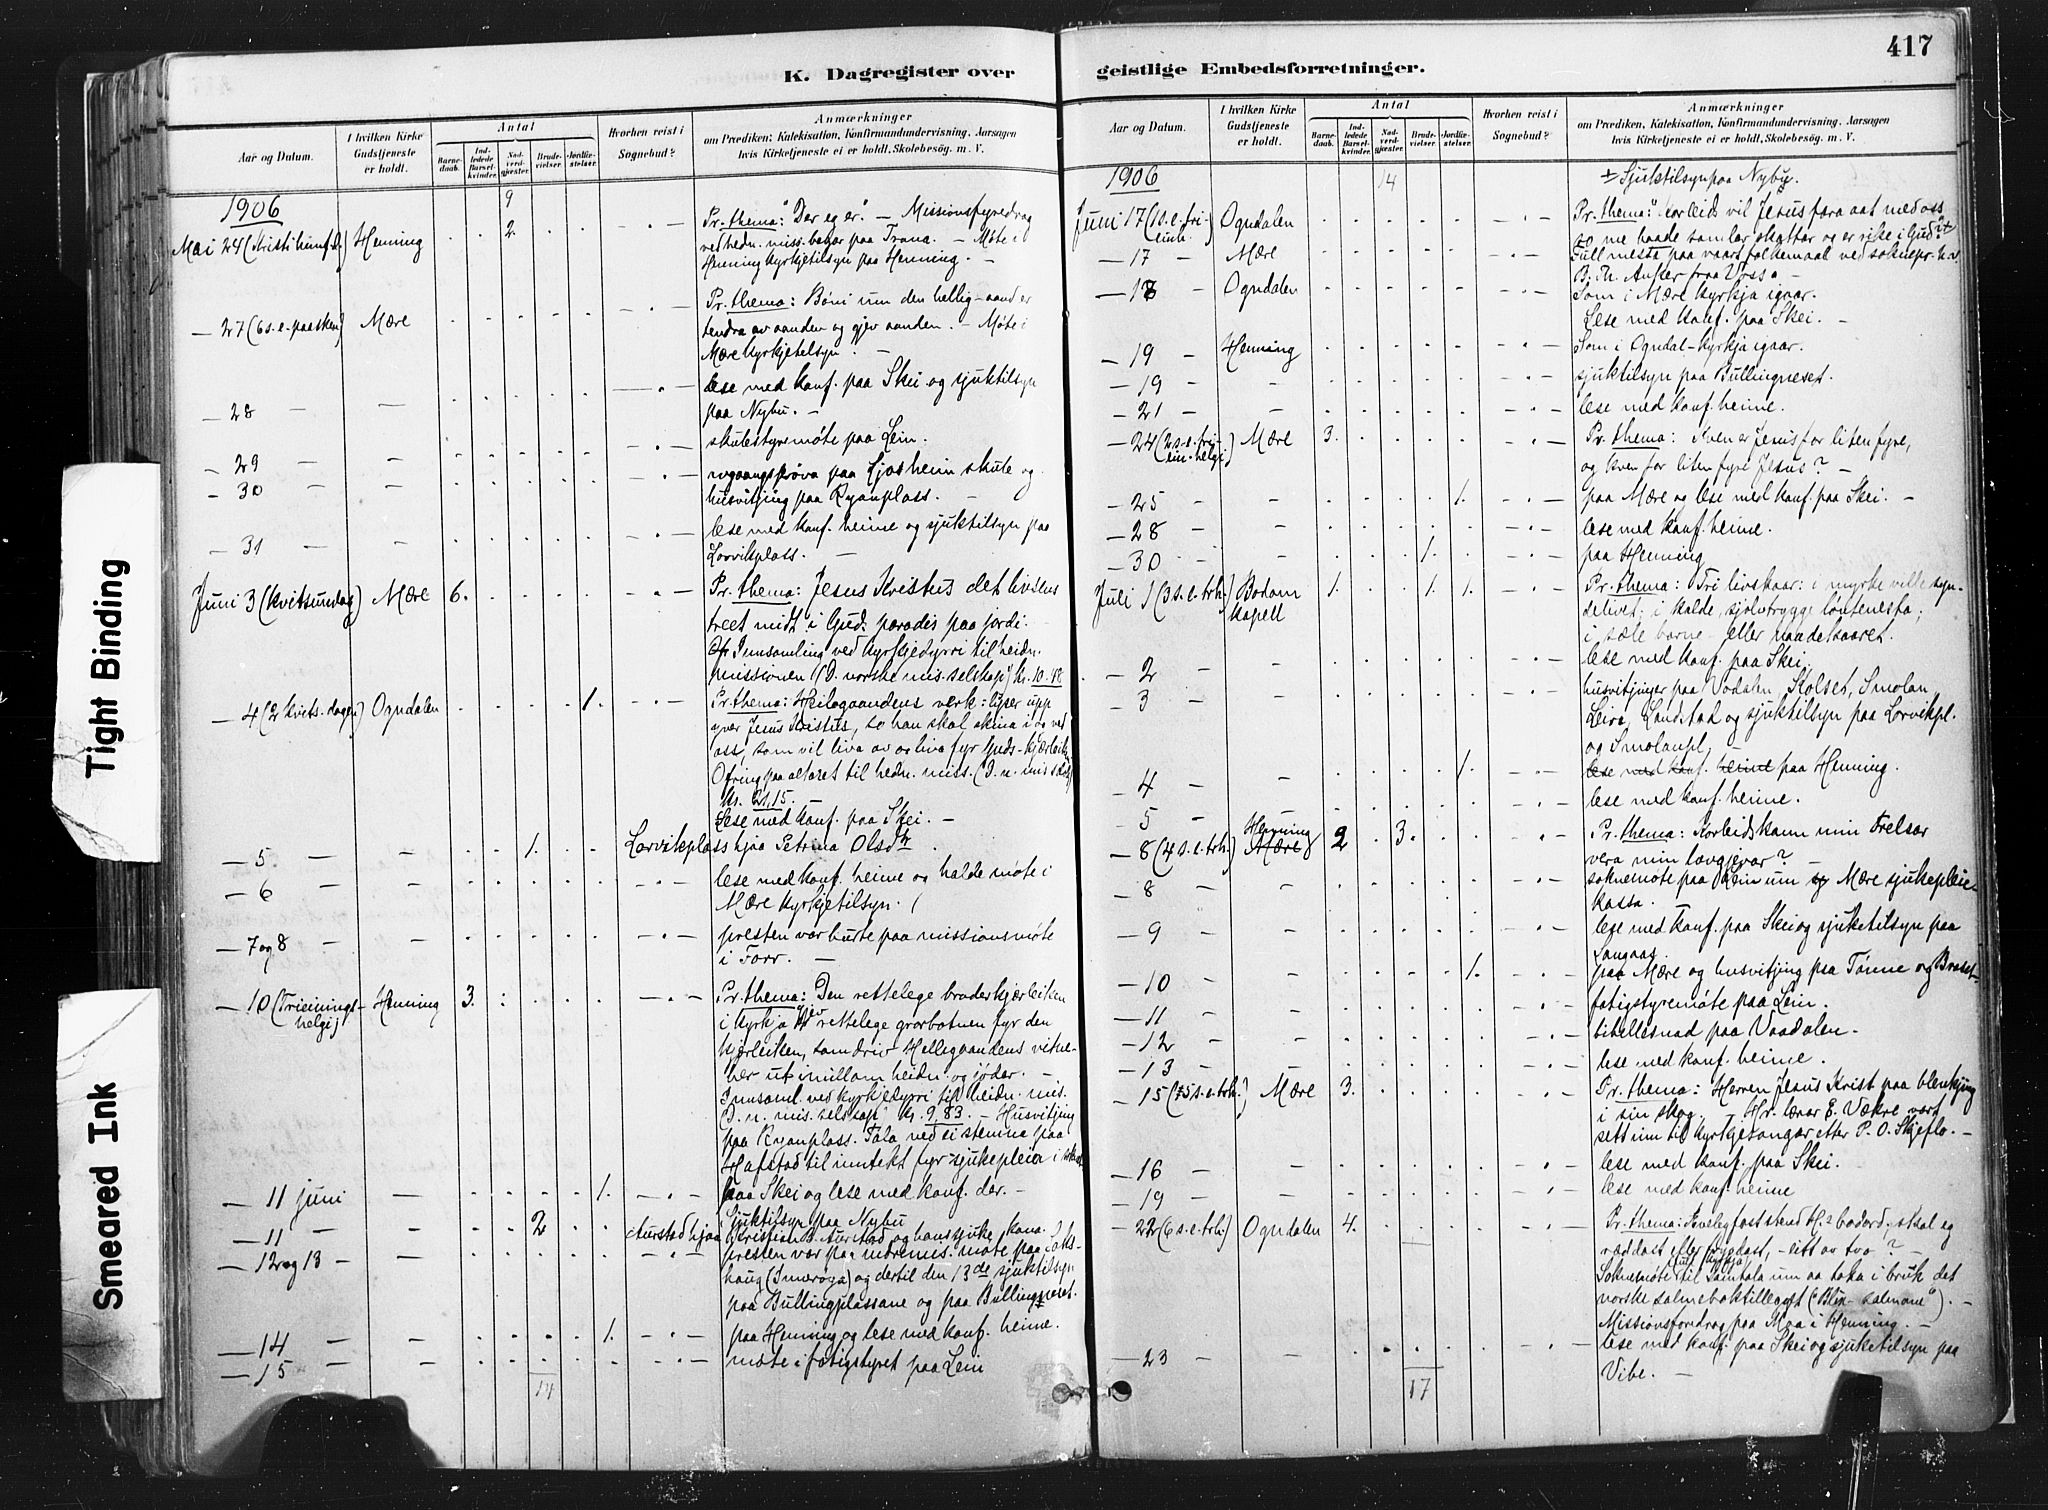 417
K. Dagregister over geistlige Embedsforretninger.
Aar og Datum.
I hvilken Kirke Gudstjeneste er holdt.
Antal
Barnedaab.
Indledede Barselkvinder.
Nadverdgjæster.
Brudevielser.
Jordfæstelser.
Hvorhen reist i Sognebud?
Anmærkninger
om Prædiken, Katekisation, Konfirmandundervisning, Aarsagen
hvis Kirketjeneste ei er holdt, Skolebesøg. m. V.
1906 9
Mai 24 (Kristi himf. d.) Henning 2. Pr. thema: "Der eg er". — Missionsfyredrag
ved hedn. miss. bøgar paa Trana. — Møte i
Henning kyrkjetilsyn paa Henning. —
— 27 (6 s. e. paasken) Mære Pr. thema: Bøni um den hellig-aand er
tendra av aanden og gjev aanden. — Møte i
Mære kyrkjetilsyn. —
— 28 — — lese med konf. paa Skei og sjuktilsyn
paa Nybu. —
— 29 — — skulestyremøte paa Lein.
— 30 — — avgangsprøva paa Ljosheim skule og
husvitjing paa Ryanplass. —
— 31 — — lese med konf. heime og sjuktilsyn paa
Lorvikplass. —
Juni 3 (kvitsundag) Mære 6. Pr. thema: Jesus Kristus det livsens
treet midt i Guds paradis paa jordi.
Innsamling ved kyrkjedyrri til heidn.
missionen (D. norske mis. selskap) kr. 10.48
— 4 (2 kvits. dagen) Ogndalen 1. Pr. thema: Heilagaandens verk: lyser upp
yver Jesus Kristus, so han skal skina i og ved
oss, som vil liva av og liva fyr Guds-kjærleiken
Ofring paa altaret til hedn. miss. (D. n. miss. selsk.)
kr. 21,15.
Lese med konf. paa Skei. —
— 5 — — 1. Lorvikplass hjaa Petrina Olsdtr.
— 6 — — lese med konf. heime og halde møte i
Mære kyrkjetilsyn.
— 7 og 8 — — presten var burte paa missionsmøte
i Forr. —
— 10 (Trieinings-helgi) Henning 3. Pr. thema: Den rettelege broderkjærleiken
i kyrkja er rettelege grorbotnen fyr den
kjærleiken, som driv Heilagaandens vitne-
ber ut imillom heidn. og jødar. —
Innsaml. ved kyrkjedyrri til heidn. mis.
(D. n. mis. selskap) kr. 9,83. — Husvitjing
paa Ryanplass. Tala ved ei stemna paa
Hafstad til inntekt fyr sjukepleia i sokni
— 11 juni — 1. paa Skei og lese med konf. der. —
Sjuktilsyn paa Nybu
— 11 — — 2 Aurstad hjaa Kristian B. Aurstad og hans sjuke kona.
— 12 og 13 — — presten var paa indremis. møte paa Saks-
haug (Inderøya) og dertil den 13de sjuktilsyn
paa Bullingplassane og paa Bullingneset.
— 14 — — 1. paa Henning og lese med konf. heime.
— 15 — — møte i fatigstyret paa Lein
14
1906 14 Sjuktilsyn paa Nybu.
Juni 17 (1 s. e. tri-einh.) Ogndalen Pr. thema: "Korleids vil Jesus fara aat med oss
so me baade samlar skattar og er rike i Gud"?
— 17 — Mære Full messa paa vaart folkemaal ved soknepr. h.v.
B. Th. Anker fraa Voss. —
— 18 Ogndalen Som i Mære kyrkja igaar.
Lese med konf. paa Skei. —
— 19 — Henning Som i Ogndal-kyrkja igaar.
— 19 — — sjuktilsyn paa Bullingneset.
— 21 — — lese med konf. heime.
— 24 (2 s. e. tri-ein. helgi) Mære 3. Pr. thema: Kven er Jesus for liten fyre,
og kven for liten fyre Jesus? —
— 25 — 1. paa Mære og lese med konf. paa Skei. —
— 28 — — lese med konf. heime.
— 30 — 1. paa Henning
Juli 1 (3 s. e. trh.) Bodom kapell 1. 1. 1. Pr. thema: Tri livskaar: i myrke ville syn-
delivet; i kalde, sjølvtrygge løntenesta;
i sæle barne- eller naadekaaret.
— 2 — — lese med konf. paa Skei.
— 3 — — husvitjingar paa Vodalen, Kolset, Smolan,
Leira, Landstad og sjuktilsyn paa Lorvikpl.
og Smolanpl.
— 4 — — 1. lese med konf. heime paa Henning.
— 5 — — lese med konf. heime.
— 8 (4 s. e. trh.) Henning Mære 2 3. Pr. thema: Korleids kann min Frelsar
vera min lovgjevar? —
— 8 — — soknemøte paa Lein um Mære sjukepleie-
kassa.
— 9 — — lese med konf. paa Skei og sjuketilsyn paa
Langaas.
— 10 — — 1. paa Mære og husvitjing paa Tønne og Braset
— 11 — — fatigstyremøte paa Lein.
— 12 — — bibellesnad paa Vaadalen.
— 13 — — lese med konf. heime.
— 15 (5 s. e. trh.) Mære 3. Pr. thema: Herren Jesus Krist paa blenkjing
i sin skog. — Hr. lærar E. Vækre vart
sett inn til kyrkjesongar etter P. O. Skjeflo. —
— 16 — — lese med konf. paa Skei.
— 19 — — lese med konf. heime
— 22 (6 s. e. trh.) Ogndalen 4. Pr. thema: bodord, skal eg
ræddast eller frygdast, — eitt av two? —
Soknemøte til samtala um aa taka i bruk det
norske salmeboktillegget ("Blix-salmane"). —
Missionsfordrag paa Moa i Henning. —
— 23 — — lese med konf. paa Skei og sjuketilsyn paa
Vibe. —
17
Tight Binding
Smeared Ink